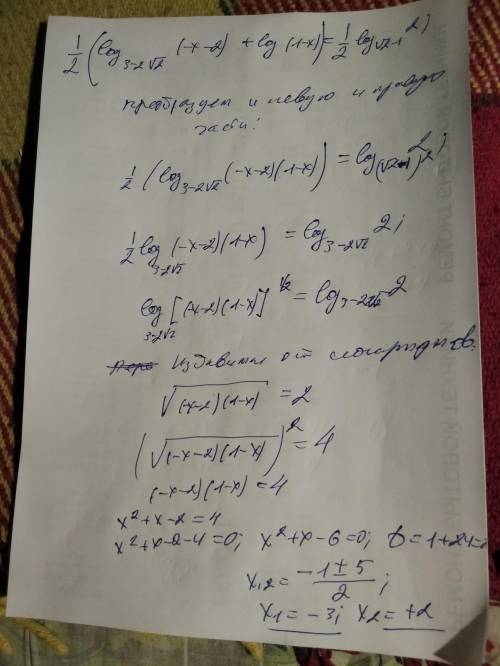 1/2 (log_{3-2√2} (-x-2) + log (1-x) = 1/2 log_{√2-1} 2)
преобразуем и левую и правую
части:
1/2 (log_{3-2√2} (-x-2)(1-x)) = log_{(√2-1)^2} 2;
1/2 log_{3-2√2} (-x-2)(1-x) = log_{3-2√2} 2;
log_{3-2√2} [(-x-2)(1-x)]^{1/2} = log_{3-2√2} 2
Избавимся от логарифмов:
√((-x-2)(1-x)) = 2
(√((-x-2)(1-x)))^2 = 4
(-x-2)(1-x) = 4
x^2+x-2=4
x^2+x-2-4=0; x^2+x-6=0; D=1+24=
x_{1,2} = (-1±5)/2;
x1=-3; x2=+2